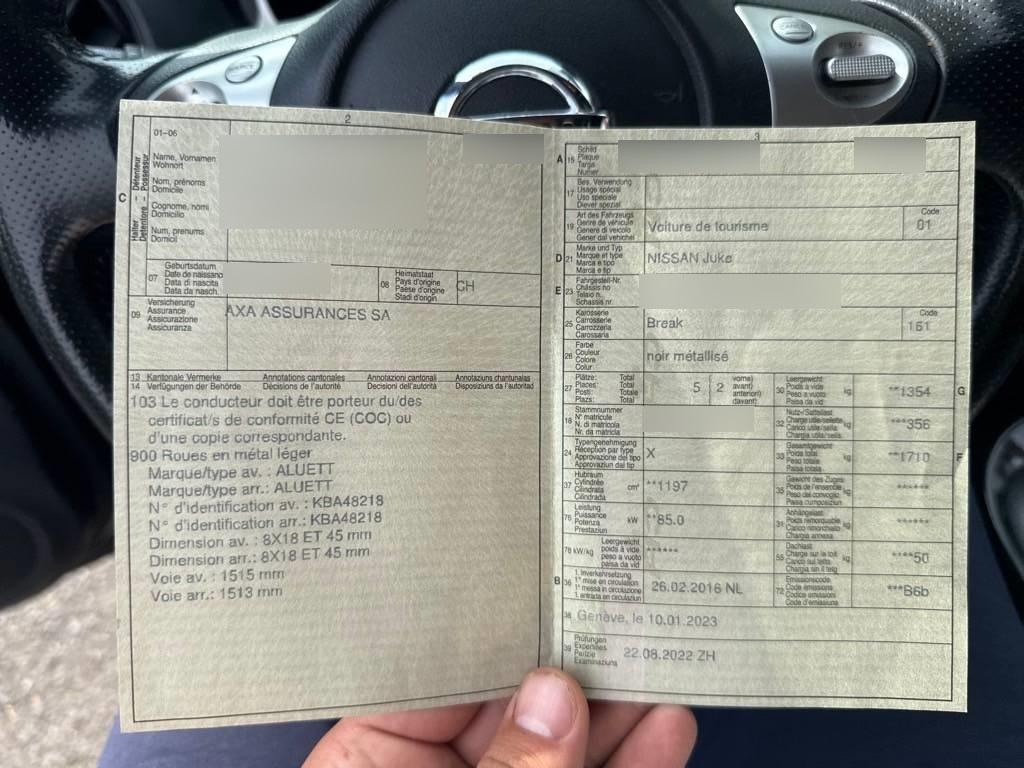 2
01-06
C
Halter - Détenteur
Detentore - Possessur
Name, Vornamen
Wohnort
Nom, prénoms
Domicile
Cognome, nomi
Domicilio
Num, prenums
Domicil
07
Geburtsdatum
Date de naissance
Data di nascita
Data da nasch.
08
Heimatstaat
Pays d'origine
Paese d'origine
Stadi d'origin
CH
09
Versicherung
Assurance
Assicurazione
Assicuranza
AXA ASSURANCES SA
13 Kantonale Vermerke Annotations cantonales Annotazioni cantonali Annotaziuns chantunalas
14 Verfügungen der Behörde Décisions de l'autorité Decisioni dell'autorità Disposiziuns da l'autoritad
103 Le conducteur doit être porteur du/des
certificat/s de conformité CE (COC) ou
d'une copie correspondante.
900 Roues en métal léger
Marque/type av. : ALUETT
Marque/type arr.: ALUETT
N° d'identification av. : KBA48218
N° d'identification arr.: KBA48218
Dimension av. : 8X18 ET 45 mm
Dimension arr.: 8X18 ET 45 mm
Voie av. : 1515 mm
Voie arr.: 1513 mm
3
A 15
Schild
Plaque
Targa
Numer
17
Bes. Verwendung
Usage spécial
Uso speciale
Diever spezial
19
Art des Fahrzeugs
Genre de véhicule
Genere di veicolo
Gener dal vehichel
Voiture de tourisme
Code
01
D 21
Marke und Typ
Marque et type
Marca e tipo
Marca e tip
NISSAN Juke
E 23
Fahrgestell-Nr.
Châssis no
Telaio n.
Schassis nr.
25
Karosserie
Carrosserie
Carrozzeria
Carossaria
Break
Code
161
26
Farbe
Couleur
Colore
Colur
noir métallisé
27
Plätze: Total
Places: Total
Posti: Totale
Plazs: Total
5 2
vorne)
avant)
anteriori)
davant)
30
Leergewicht
Poids à vide
Peso a vuoto
Paisa da vid
kg
**1354
G
18
Stammnummer
N° matricule
N. di matricola
Nr. da matricla
32
Nutz-/Sattellast
Charge utile/sellette
Carico utile/sella
Chargia utila/sella
kg
***356
24
Typengenehmigung
Réception par type
Approvazione del tipo
Approvaziun dal tip
X
33
Gesamtgewicht
Poids total
Peso totale
Paisa totala
kg
**1710
F
37
Hubraum
Cylindrée
Cilindrata
Cilindrada
cm³
**1197
35
Gewicht des Zuges
Poids de l'ensemble
Peso del convoglio
Paisa cumposiziun
kg
******
76
Leistung
Puissance
Potenza
Prestaziun
kW
**85.0
31
Anhängelast
Poids remorquable
Carico rimorchiato
Chargia annexa
kg
******
78 kW/kg
Leergewicht
poids à vide
peso a vuoto
paisa da vid
******
55
Dachlast
Charge sur le toit
Carico sul tetto
Chargia sin il tetg
kg
****50
B 36
1. Inverkehrsetzung
1re mise en circulation
1a messa in circolazione
1. entrada en circulaziun
26.02.2016 NL
72
Emissionscode
Code émissions
Codice emissioni
Code d'emissiuns
***B6b
38 Genève, le 10.01.2023
39
Prüfungen
Expertises
Perizie
Examinaziuns
22.08.2022 ZH